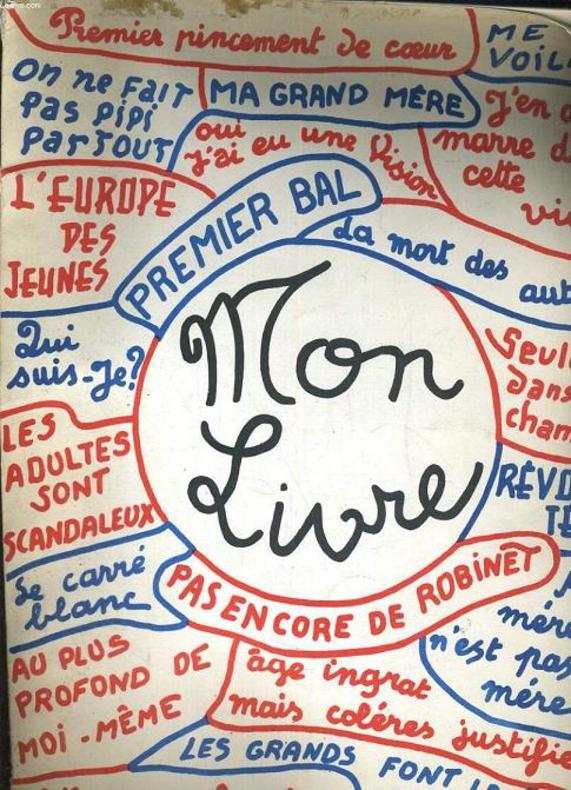 Premier pincement de cœur
ME
VOIL
On ne FaiT
pas pipi
parTOUT
MA GRAND MÉRE
oui
j'ai eu une Vision
J'en a
marre d
cette
vi
L'EUROPE
DES
JEUNES
PREMIER BAL
La mort des aut
Qui
suis-Je?
Mon
Livre
Seul
dans
cham
LES
ADULTES
SONT
SCANDALEUX
RÉVO
TE
Le carré
blanc
PAS ENCORE DE ROBINET
mére
n'est pas
mére
AU PLUS
PROFOND DE
MOI-MÊME
âge ingrat
mais coléres justifie
LES GRANDS FONT